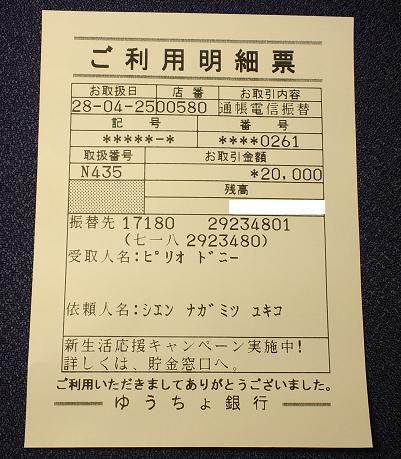 ご利用明細票
お取扱日 店番 お取引内容
28-04-25 00580 通帳電信振替
記号 番号
*****-* ****0261
取扱番号 お取引金額
N435 *20,000
残高
振替先 17180 29234801
(七一八 2923480)
受取人名:ピリオ ドニー
依頼人名:シエン ナガミツ ユキコ
新生活応援キャンペーン実施中!
詳しくは、貯金窓口へ。
ご利用いただきましてありがとうございました。
ゆうちょ銀行